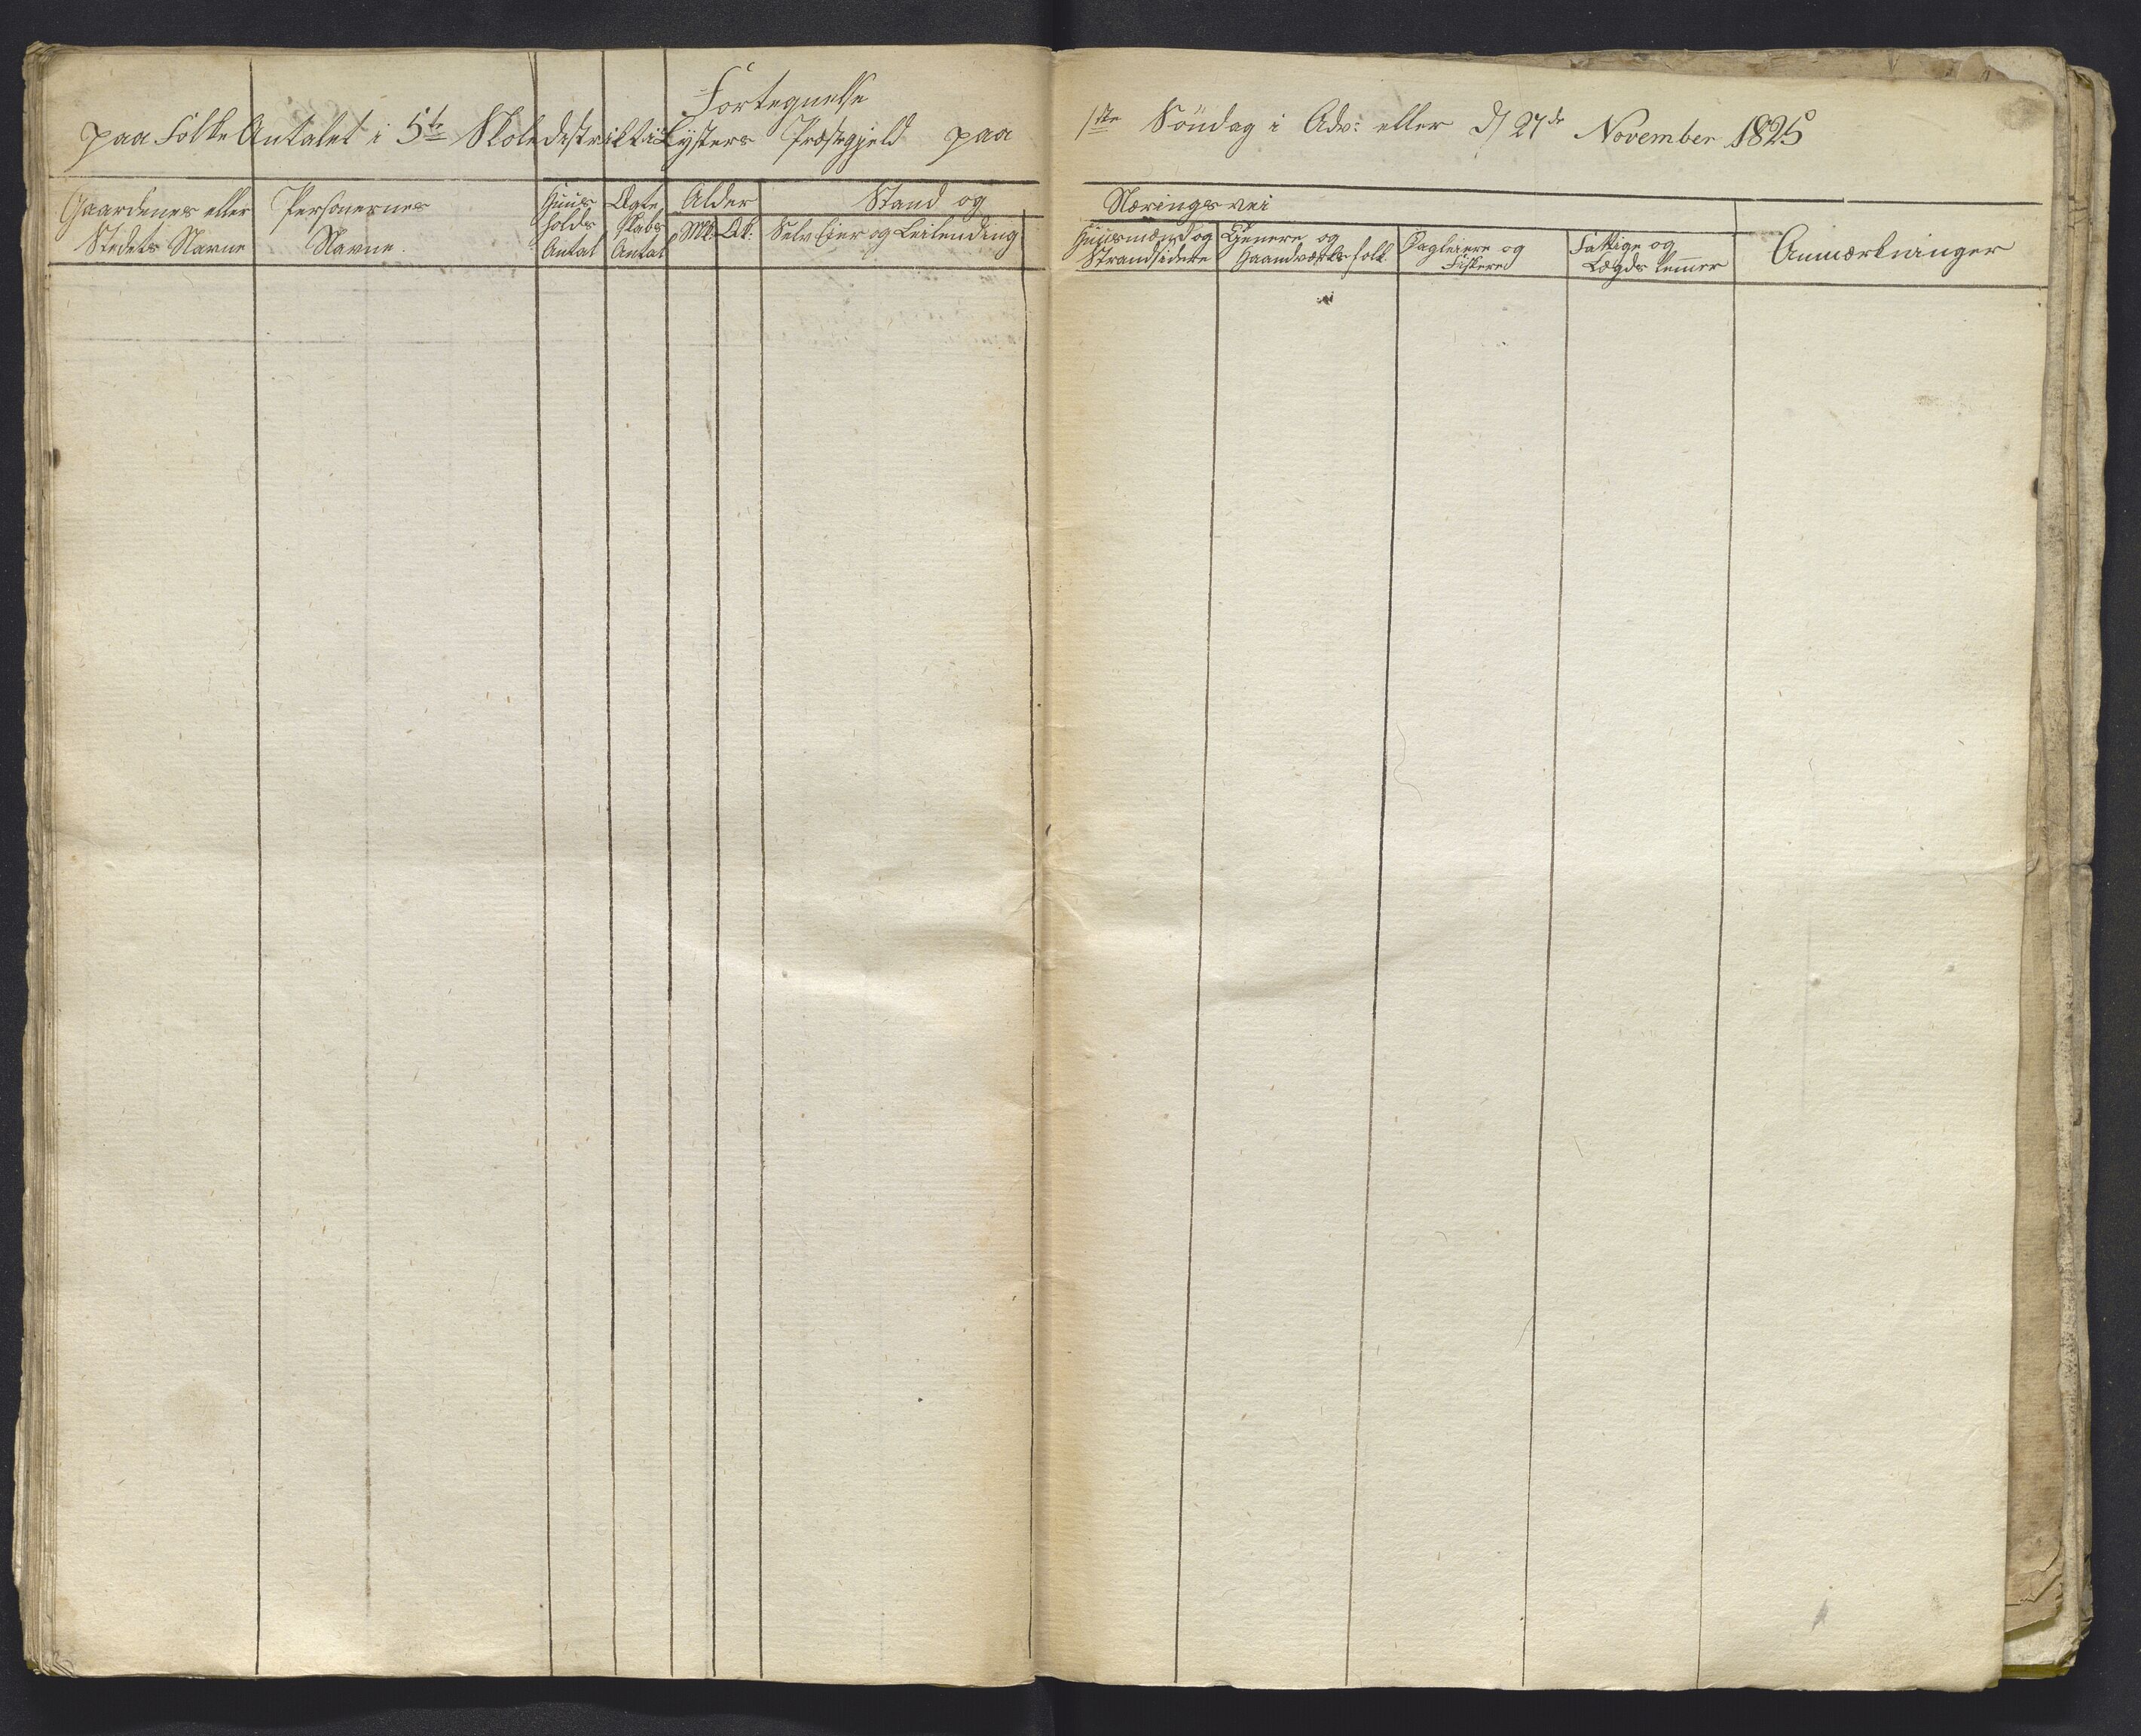 Fortegnelse
paa Folke Antalet i 5te Skoledistrikt i Lysters Præstegjeld paa
1ste Söndag i Adv: eller d/ 27de November 1825
Gaardenes eller
Stedets Navne
Personernes
Navne.
Huus
holds
Antal
Ægte
skabs
Antal
Alder
Mk: Qk:
Stand og
Selv Eier og Leilending
Nærings vei
Huusmænd og
Strandsidere
Tjenere og
Haandværksfolk
Dagleiere og
Fiskere
Fattige og
Lægds lemer
Anmærkninger